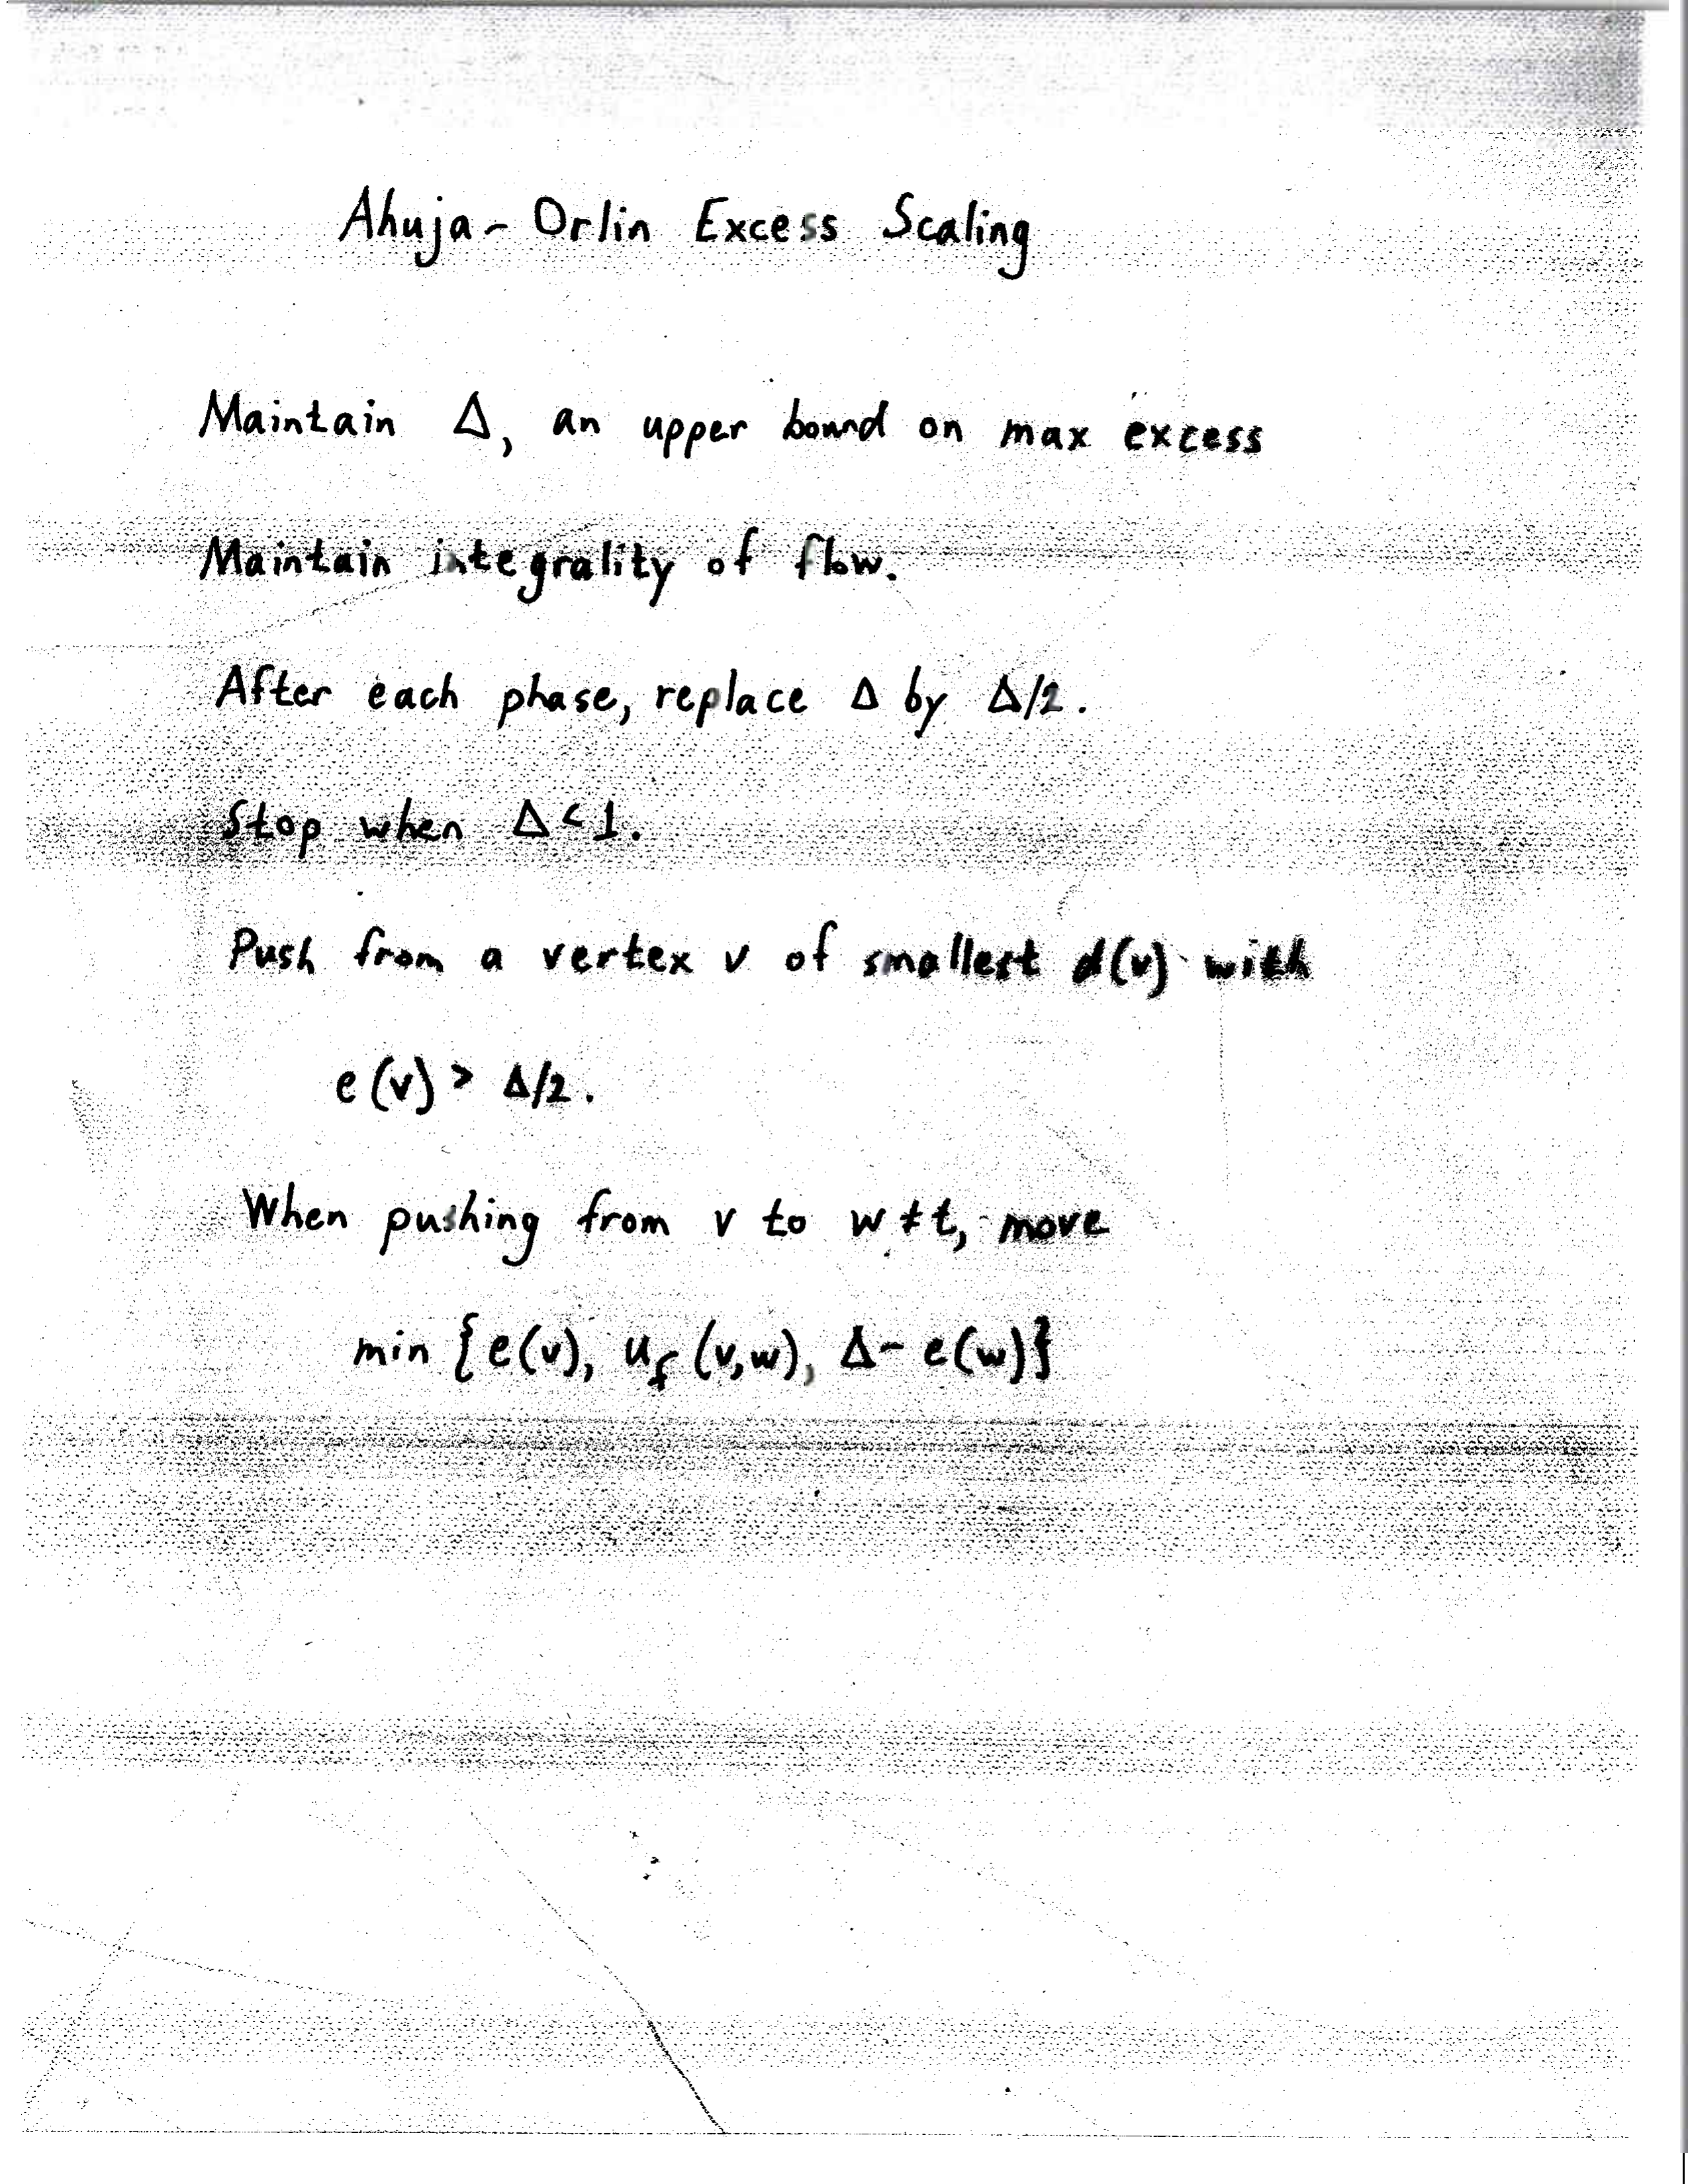 Ahuja - Orlin Excess Scaling
Maintain Δ, an upper bound on max excess
Maintain integrality of flow.
After each phase, replace Δ by Δ/2.
Stop when Δ < 1.
Push from a vertex v of smallest d(v) with
e(v) > Δ/2.
When pushing from v to w ≠ t, move
min {e(v), u_f (v,w), Δ - e(w)}